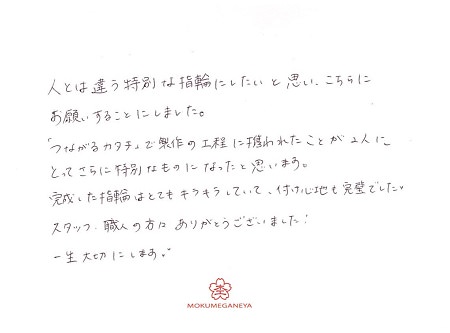 人とは違う特別な指輪にしたいと思い、こちらに
お願いすることにしました。
「つながるカタチ」で製作の工程に携われたことが2人に
とってさらに特別なものになったと思います。
完成した指輪はとてもキラキラしていて、付け心地も完璧でした。
スタッフ・職人の方に ありがとうございました!
一生大切にします。
MOKUMEGANEYA